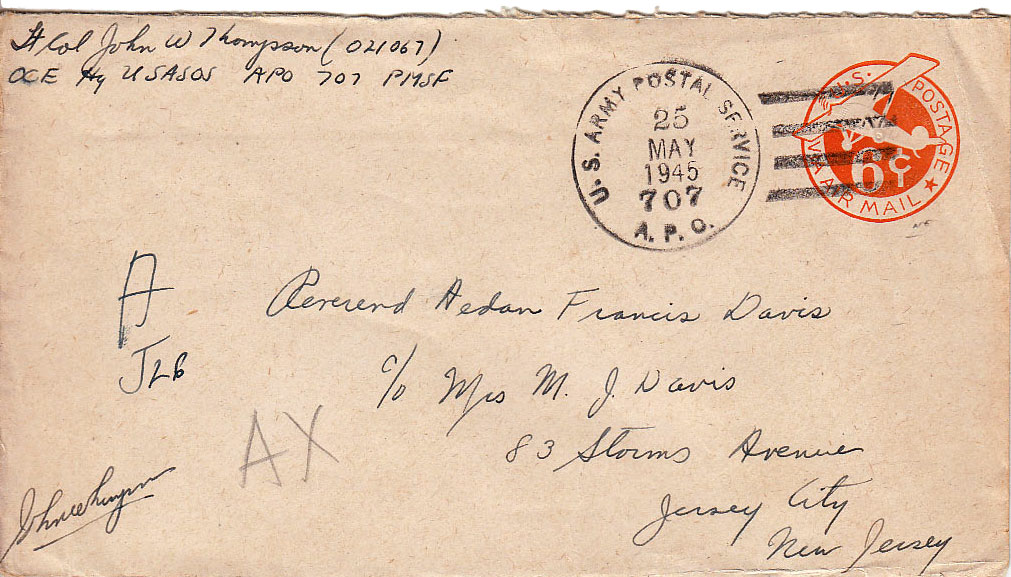 Lt Col John W Thompson (021067)
OCE Hq USASOS APO 707 PMSF
U.S. ARMY POSTAL SERVICE
25
MAY
1945
707
A.P.O.
U.S. POSTAGE
VIA AIR MAIL
6¢
A
JLB
AX
Reverend Aedan Francis Davis
c/o Mrs M. J. Davis
83 Storms Avenue
Jersey City
New Jersey